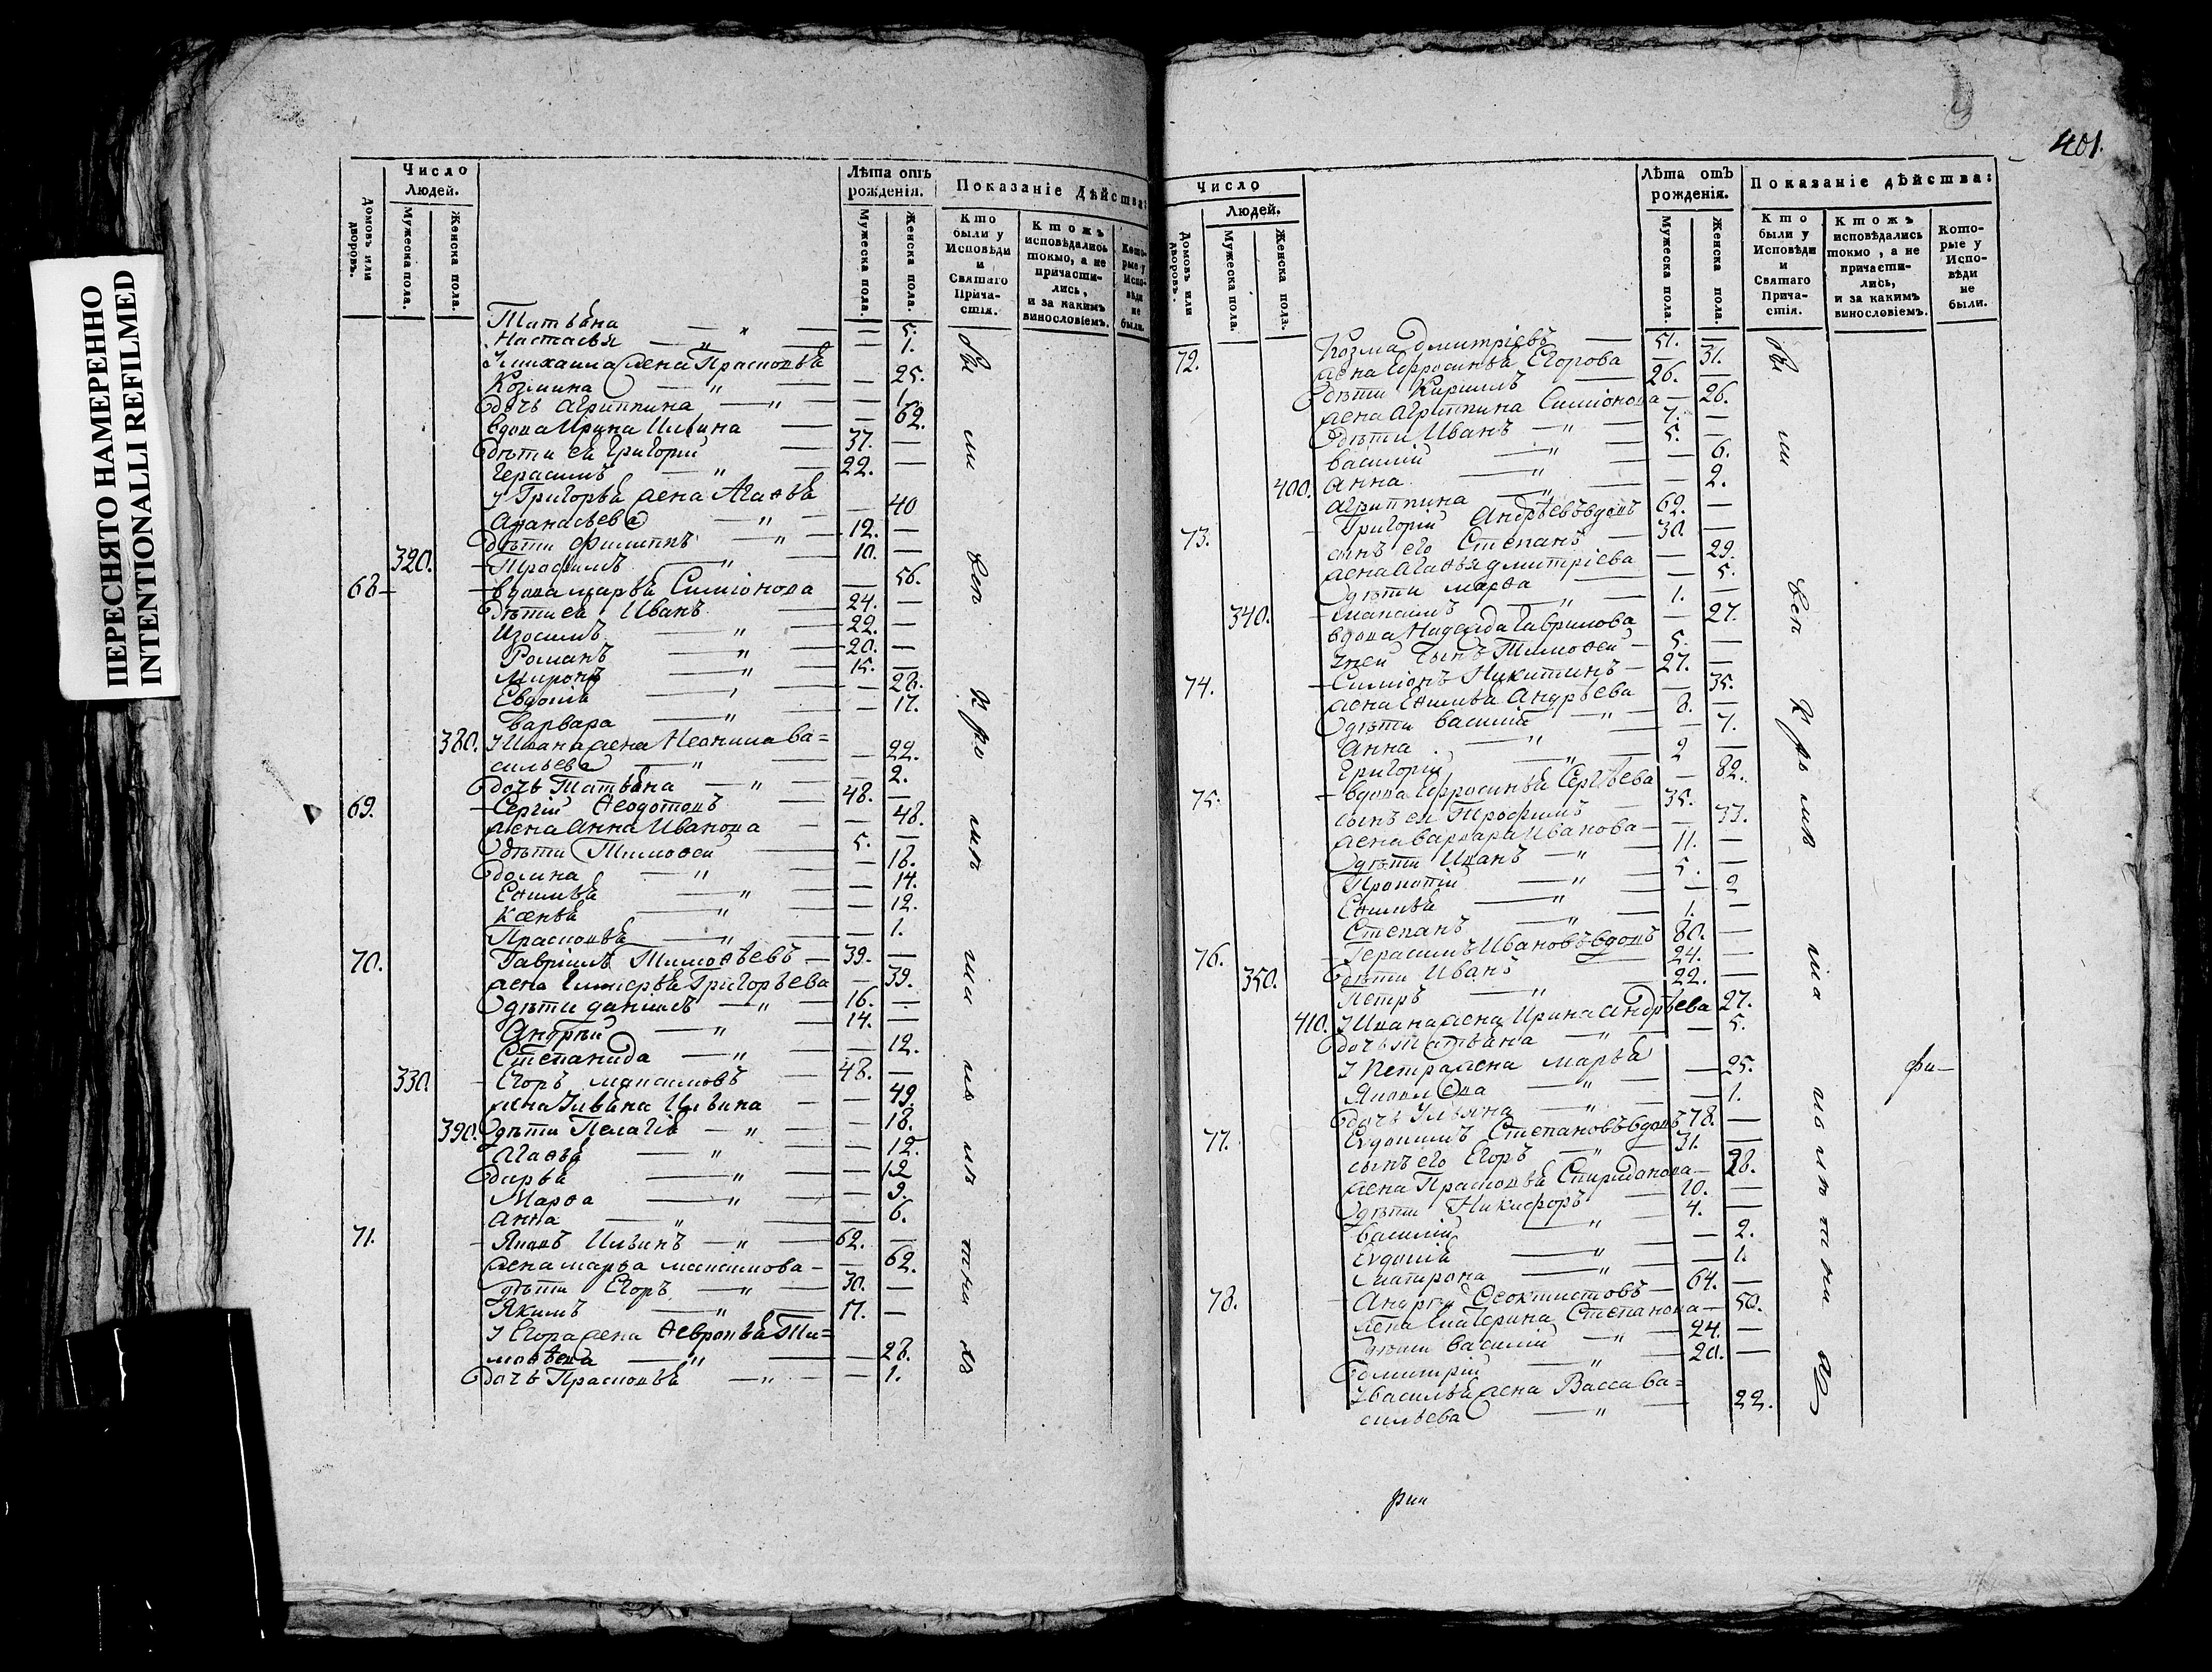 ПЕРЕСНЯТО НАМЕРЕННО
INTENTIONALLI REFILMED
Число Людей.
Домовъ или дворовъ.
Мужеска пола.
Женска пола.
Лѣта отъ рожденія.
Мужеска пола.
Женска пола.
Показаніе Дѣйства:
Кто были у Исповѣди и Святаго Прича-стія.
Ктожъ исповѣдались токмо, а не причасти-лись, и за какимъ винословіемъ.
Кото-рые у Испо-вѣди не были.
Татьѣна — — 5.
Настасья — — 1.
У михаила жена Прасковья
Козмина — — 25.
дочь Агриппина — — 1.
вдова Ирина Ильина — 62.
дѣти ея Григорій 37. —
Герасимъ — 22. —
У Григорья жена Агаѳья
Аѳанасьева — — 40
дѣти Филиппъ — 12. —
320. Трофимъ — 10. —
68 — вдова марья Симіонова — 56.
дѣти ея Иванъ 24. —
Изосимъ — 22. —
Романъ — 20. —
Миронъ — 15. —
Евдокія — — 28.
Варвара — — 17.
380. У Ивана жена Неонила Ва=
сильева — — 22.
дочь Татьяна — — 2.
69. Сергій Ѳеодотовъ 48. —
жена Анна Иванова — 48.
дѣти Тимоѳей 5. —
домна — — 18.
Еѳимья — — 14.
Ксенья — — 12.
Прасковья — — 1.
70. Гавріилъ Тимоѳѣевъ — 39. —
жена Гликерья Григорьева — 39.
дѣти даніилъ — 16. —
Андрѣй — 14. —
Степанида — — 12.
330. Егоръ Максимовъ 48. —
жена Ульяна Ильина — 49.
390. дѣти Пелагія — — 18.
Агаѳья — — 12.
дарья — — 12
Марѳа — — 9.
Анна — — 6.
71. Яковъ Ильинъ — 62. —
жена марѳа максимова — 62.
дѣти Егоръ — 30. —
Якимъ — 17. —
У Егора жена Ѳевронья Ти=
моѳѣева — — 28.
дочь Прасковья — — 1.
401.
Число Людей.
Домовъ или дворовъ.
Мужеска пола.
Женска полз.
Лѣта отъ рожденія.
Мужеска пола.
Женска пола.
Показаніе дѣйства:
Кто были у Исповѣди и Святаго Прича-стія.
Ктожъ исповѣдались токмо, а не причасти-лись, и за какимъ винословіемъ.
Кото-рые у Испо-вѣди не были.
72. Козма дмитріевъ — 51. —
жена Ефросинья Егорова — 31.
дѣти Кириллъ 26. —
жена Агриппина Симіонова — 26.
дѣти Иванъ — 7. —
василій — 5. —
400. Анна — — 6.
Агриппина — — 2.
73. Григорій Андрѣевъ вдовъ 62. —
сынъ его Степанъ 30. —
жена Агаѳья дмитріева — 29.
дѣти марѳа — 5.
340. максимъ — 1. —
вдова Надежда Гаврилова — 27.
У ней сынъ Тимоѳей — 5. —
74. Симіонъ Никитинъ — 27. —
жена Еѳимья Андрѣева — 35.
дѣти василій — 8. —
Анна — — 7.
Григорій — 2 —
75. вдова Ефросинья Сергѣева — 82.
сынъ ея Трофимъ 35. —
жена варвара Иванова — 33.
дѣти Иванъ — 11. —
Прокопій — 5. —
Еѳимья — — 2
Степанъ — 1. —
76. Герасимъ Ивановъ вдовъ 80. —
350. дѣти Иванъ 24. —
Петръ — 22. —
410. У Ивана жена Ирина Андрѣева 27.
дочь Татьяна — — 5.
У Петра жена марья
Яковлева — — 25.
дочь Ульяна — — 1.
77. Евдокимъ Степановъ вдовъ 78. —
сынъ его Егоръ — 31. —
жена Прасковья Спиридонова — 28.
дѣти Никифоръ 10. —
василій — 4. —
Евдокія — — 2.
матрона — — 1.
78. Андрей Ѳеоктистовъ — 64. —
жена Екатерина Степанова — 50.
дѣти василій — 24. —
дмитрій — 20. —
У василья жена Васса Ва=
сильева — — 22.